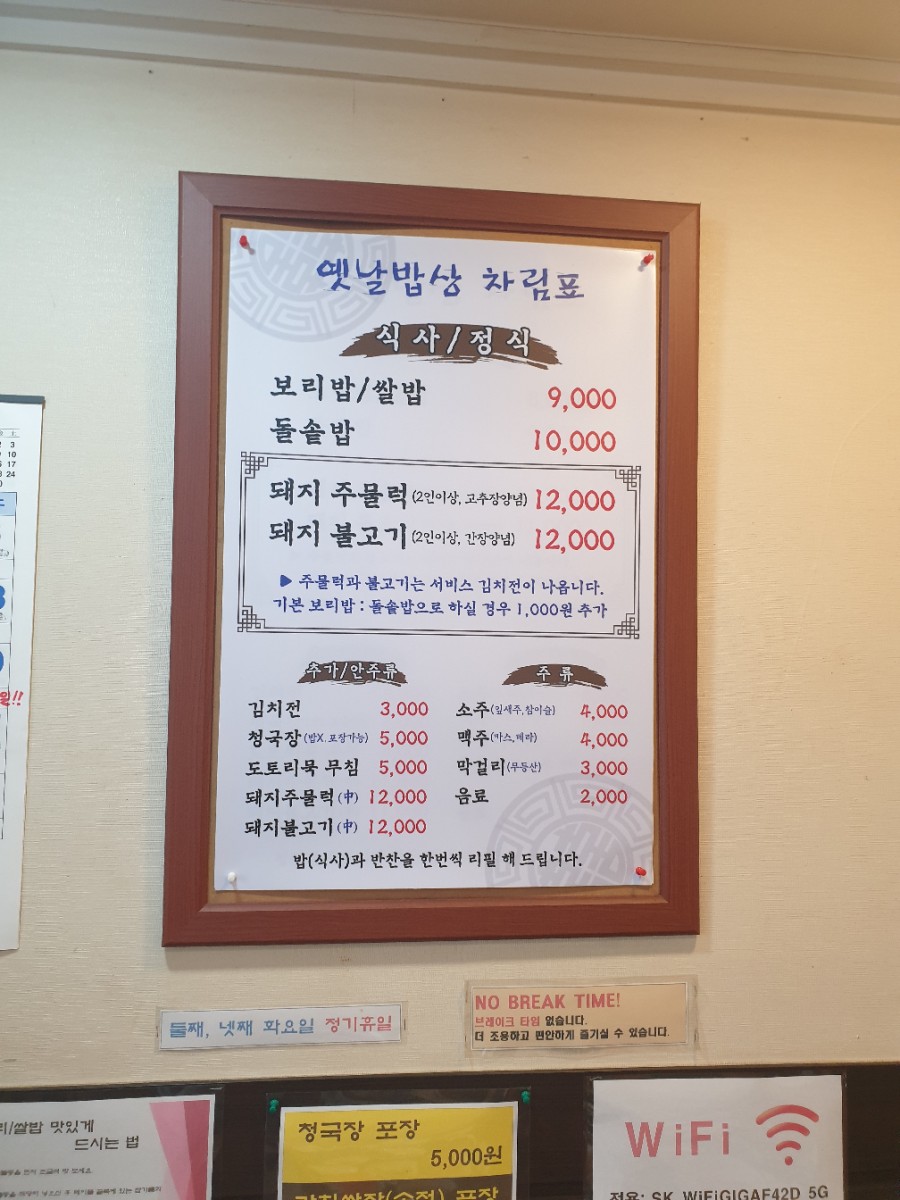 옛날밥상 차림표
식사/정식
보리밥/쌀밥 9,000
돌솥밥 10,000
돼지 주물럭(2인이상, 고추장양념) 12,000
돼지 불고기(2인이상, 간장양념) 12,000
▶ 주물럭과 불고기는 서비스 김치전이 나옵니다.
기본 보리밥 : 돌솥밥으로 하실 경우 1,000원 추가
추가/안주류
김치전 3,000
청국장(밥X, 포장가능) 5,000
도토리묵 무침 5,000
돼지주물럭(中) 12,000
돼지불고기(中) 12,000
주류
소주(잎새주,참이슬) 4,000
맥주(카스,테라) 4,000
막걸리(무등산) 3,000
음료 2,000
밥(식사)과 반찬을 한번씩 리필 해 드립니다.
둘째, 넷째 화요일 정기휴일
NO BREAK TIME!
브레이크 타임 없습니다.
더 조용하고 편안하게 즐기실 수 있습니다.
리/쌀밥 맛있게
드시는 법
청국장 포장
5,000원
WiFi
전용: SK_WiFiGIGAF42D_5G